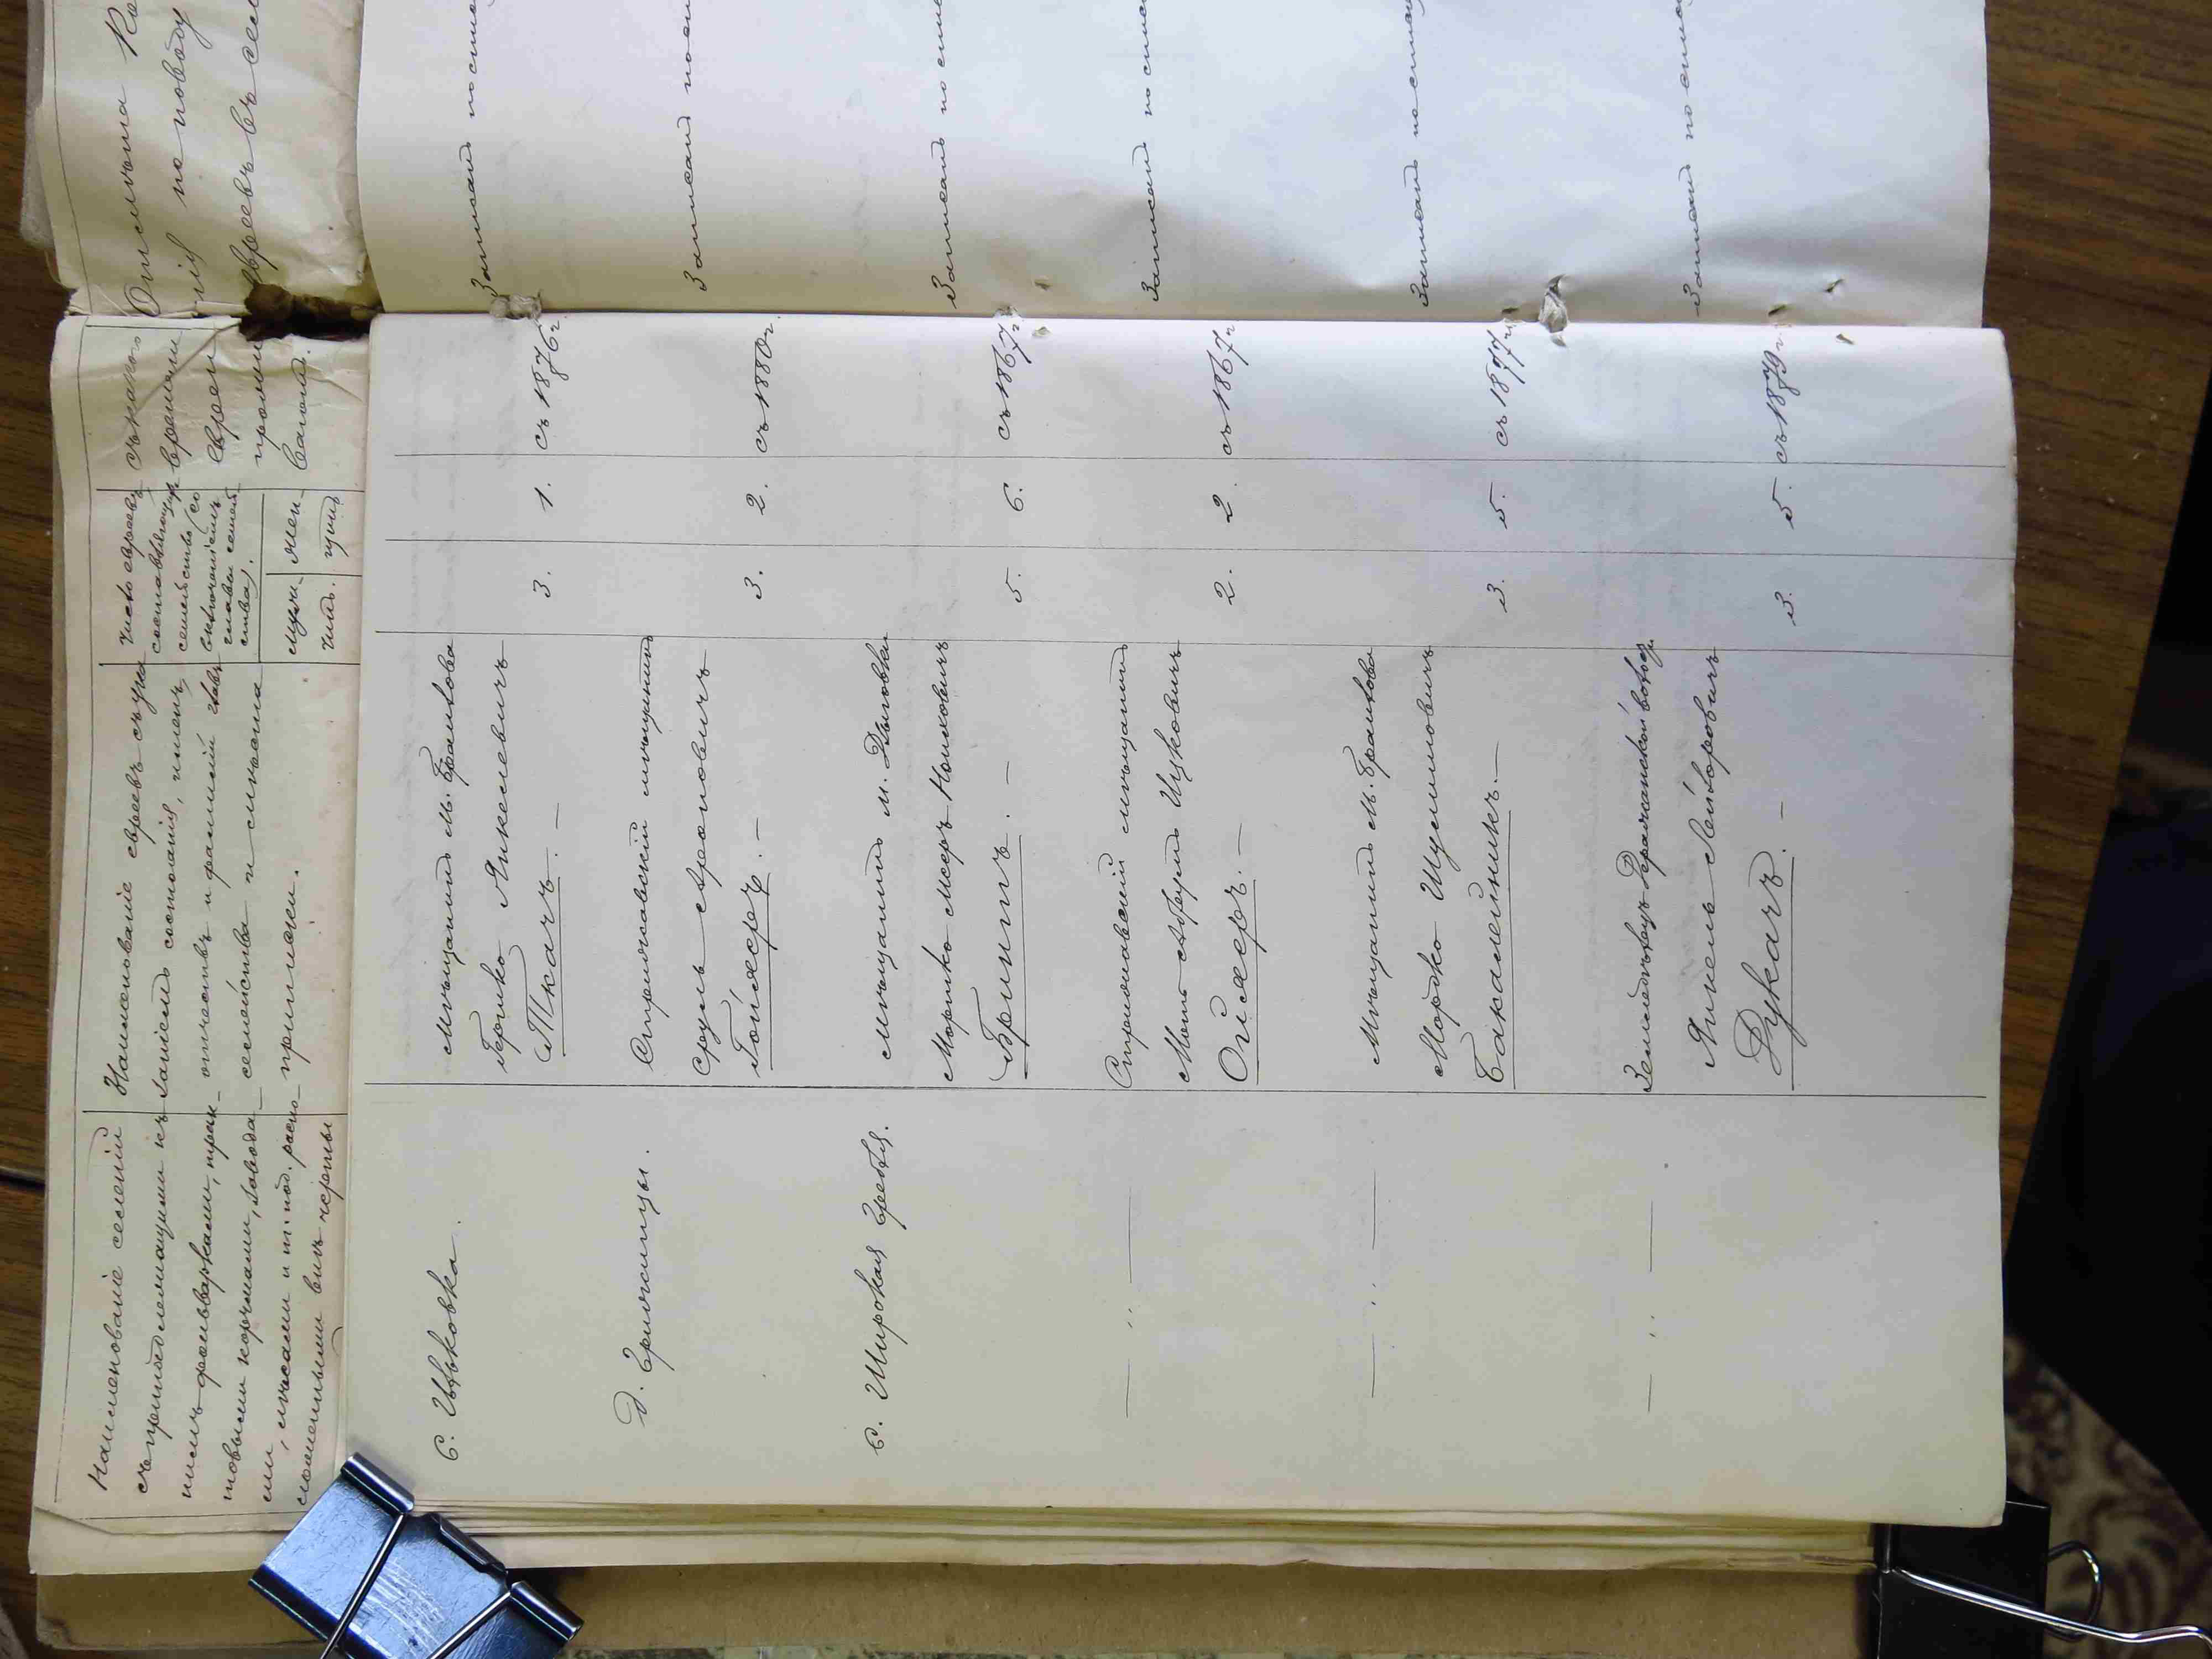 Наименованіе селеній
съ принадлежащими къ
нимъ фольварками, трак-
товыми корчмами, завода-
ми, лѣсами и т. под. распо-
ложенными внѣ черты
Наименованіе евреевъ съ ука
заніемъ состоянія, именъ,
отчествъ и фамилій главы
семейства и смысла
приписки.
Число евреевъ
составляющихъ
семейство (со
включеніемъ
главы семей-
ства).
муж-
чинъ.
жен-
щинъ
съ какого
времени
евреи
прожи
ваютъ.
Отмѣтка
по поводу
евреевъ въ сел
с. Цвѣковка.
мѣщанинъ м. Браилова
Гершко Янкелевичъ
Ткачъ. —
3.
1.
съ 1876 г
Записанъ по спис
д. Ерижинцы.
Стрижавскій мѣщанинъ
Сруль Ароновичъ
Гойзеръ. —
3.
2.
съ 1880 г.
Записанъ
с. Широкая Гребля.
мѣщанинъ м. Яновки
Моршко Меер
Гринъ. —
5.
6.
съ 1867 г
Записанъ по спи
— „ —
Стрижавскій мѣщанинъ
Абрумъ Ицковичъ
Ойзеръ. —
2.
2.
съ 1867 г
Записанъ по списк
— „ —
Мѣщанинъ м. Браилова
Мордко Шулимовичъ
Бакалейникъ. —
3.
5.
съ 1877 г.
Записанъ по списку
— „ —
Земледѣлецъ
Янкель Лейзоровичъ
Дукачъ. —
3.
5.
съ 1879 г.
Записанъ по списк